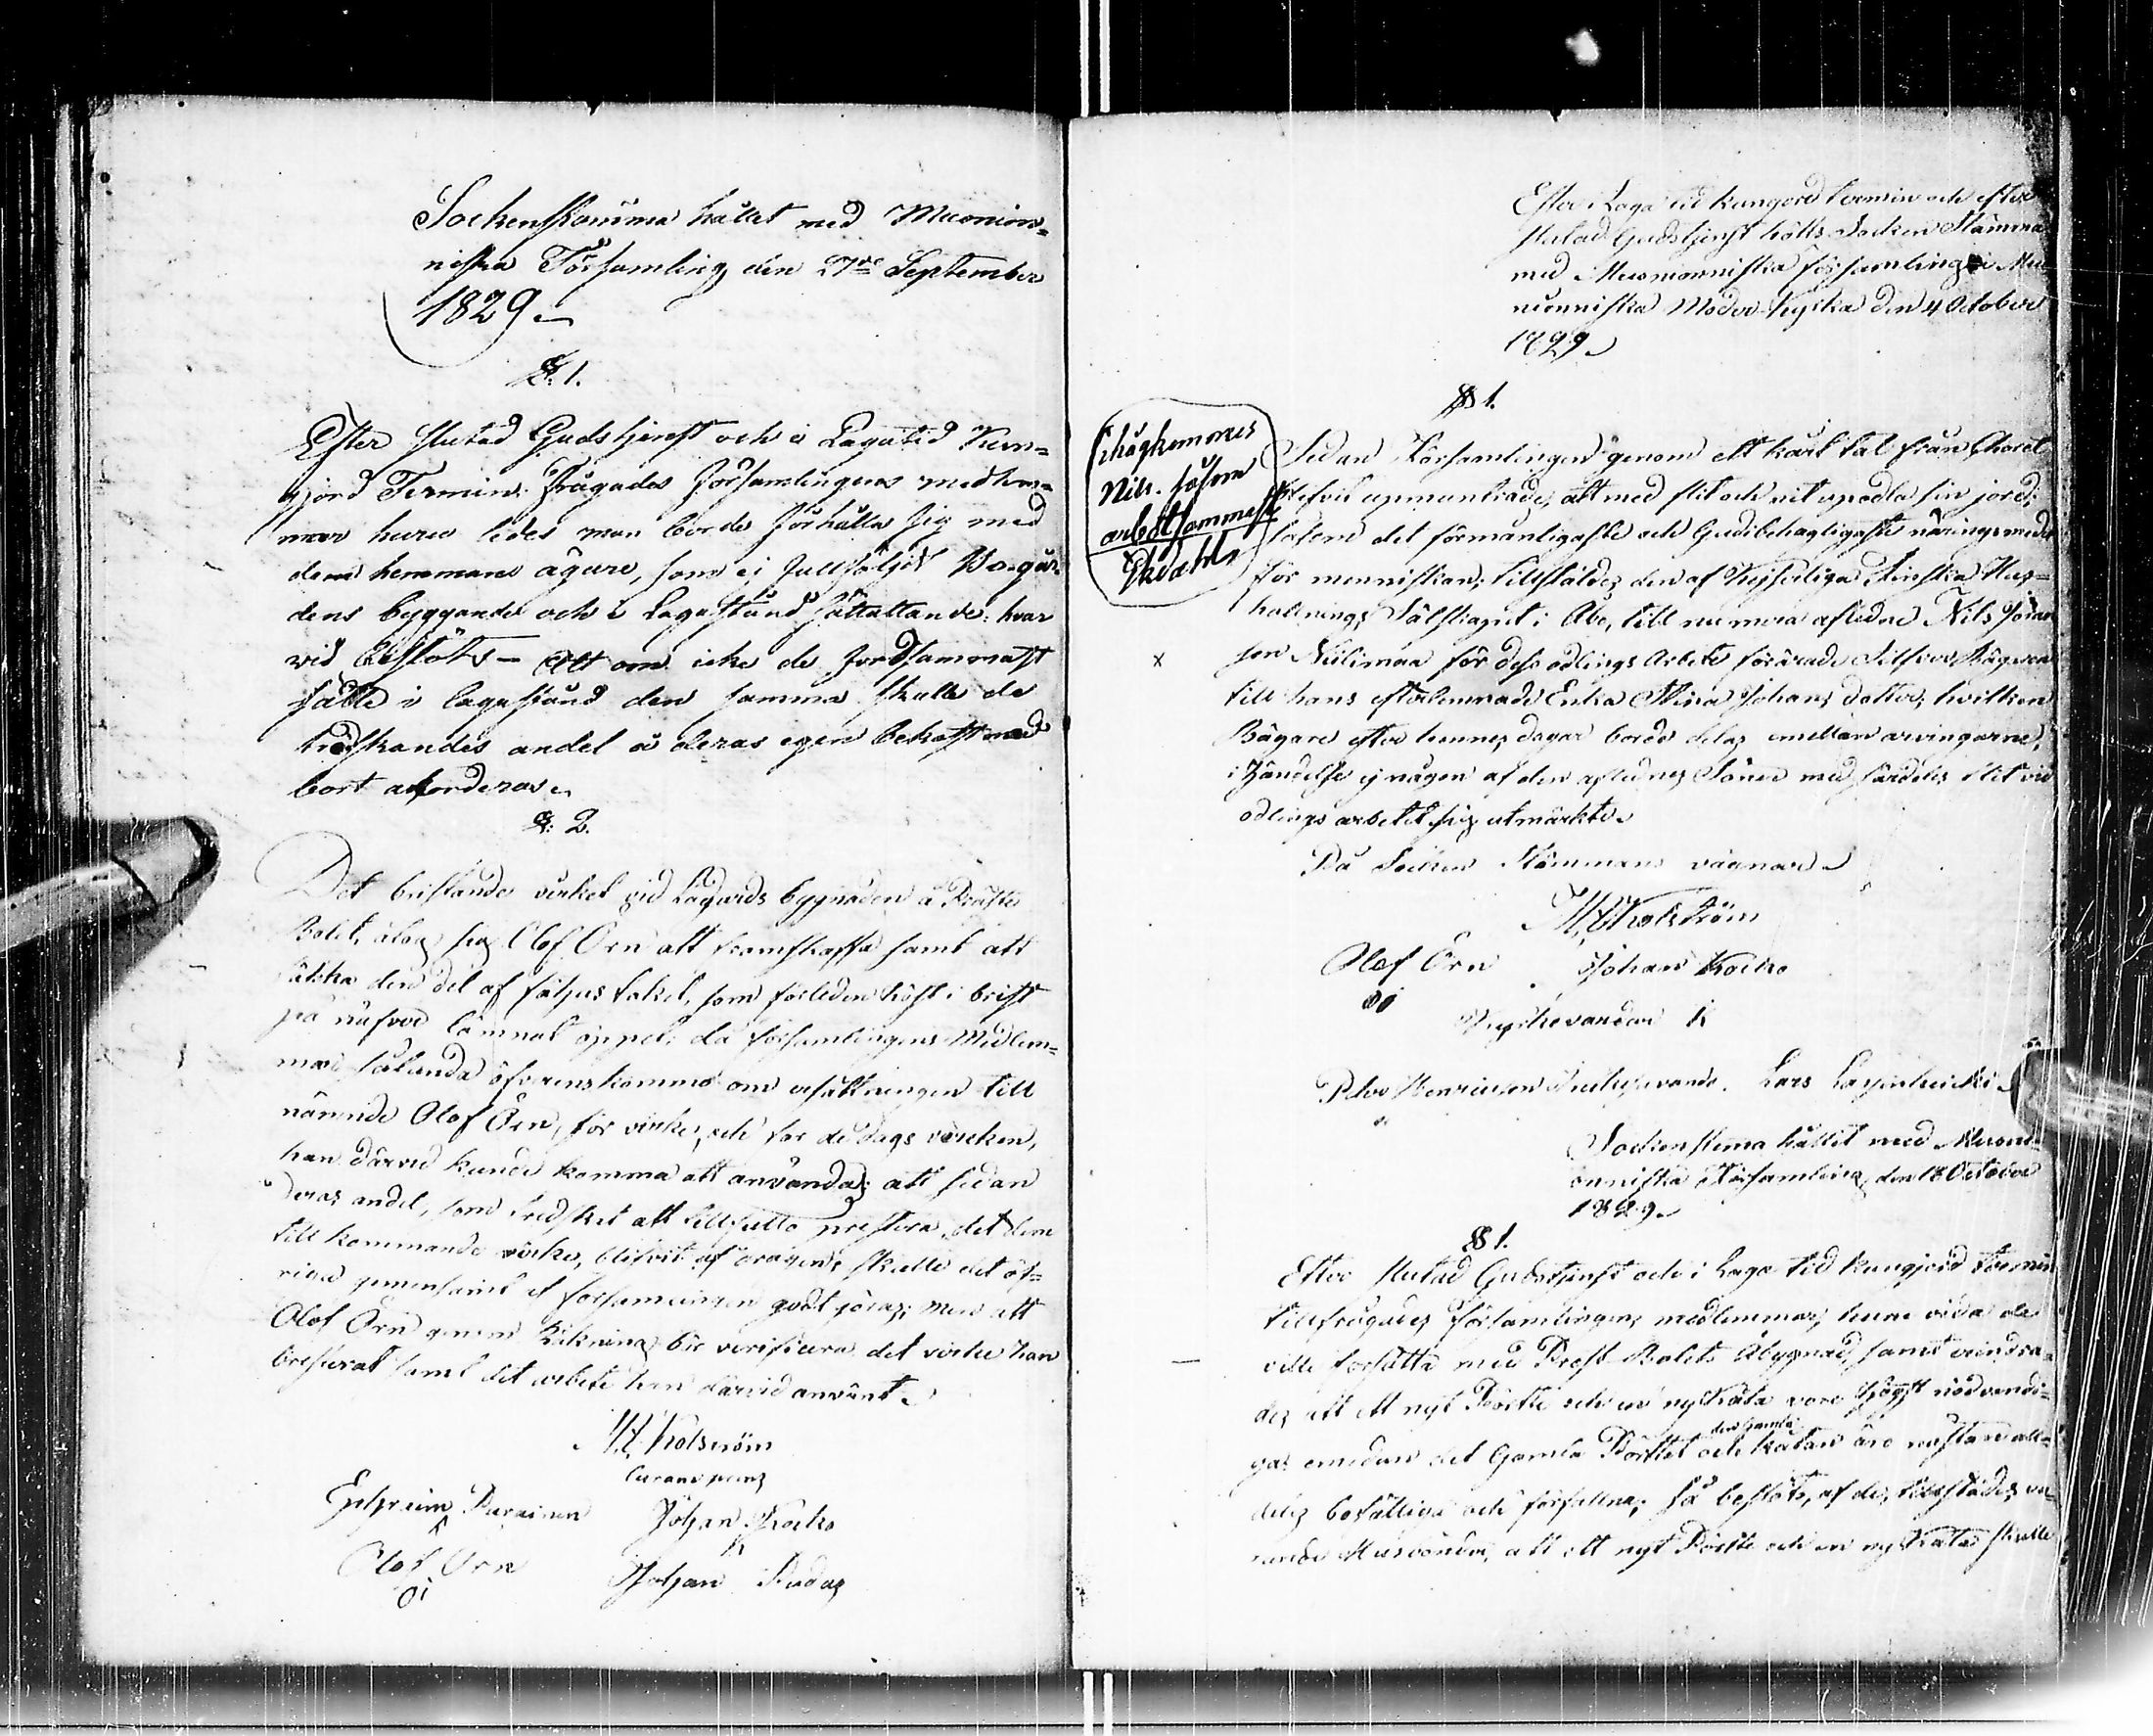 Sockenstämma hållet med Muonion=
niska Församling den 27de September
1829.
§. 1.
Efter slutad Gudstjenst och i Lagatid Kun=
gjord Termin, frågades Församlingens medlem=
mar huru ledes man borde förhålla sig med
dem hemmans ägare, som ej fullföljdt Prestgår=
dens byggande och i Lagastånd sättattande: hvar
vid beslöts – Att om icke de jordsammast
sätta i lagastånd den samma skulle de
tredskandes andel å deras egen bekostnad
bort ackorderas.
§: 2.
Det bristande virket vid Ladugårds byggnaden å Präste
Bolet, ålog sig Olof Örn att framskaffa samt att
täkka den del af fähus taket, som förleden höst i brist
på näfver lämnat öppet; då församlingens Medlem=
mar sålunda öfverenskommo om ersättningen till
nämnde Olof Örn, för virke, och för de dags värken,
han därvid kunde komma att använda; att sedan
deras andel, som tredskat att tillfullo prestera det dem
till kommande virke, blifvit af dragen, skulle det öf=
riga gemensamt af församlingen godtgöras; men att
Olof Örn genom Räkning bör verificera det virke han
presterat samt det arbete han därvid använt.
M. Kolström
Ephraim Parainen Johan Kocko
Olof Örn Johan Rudas
Efter i Laga tid kungjord termin och efter
slutad Gudstjenst hölts Socken Stämma
med Muonionniska församling i Muo
nionniska Moder-kyrka den 4 October
1829.
§ 1.
ihogkommes
Nils. såsom
arbetsammest
Sedan Församlingen genom ett kort tal från Choret
blefvit upmuntrade, att med flit och nit upodla sin jord,
såsom det förmånligaste och Gudibehagligaste näringsmedel
för menniskan; tillstäldes den af Kejserliga Finska Hus=
hållnings Sälskapet i Åbo, till nu mera afledne Nils Johan
x son Niilimaa för dess odlings Arbete förärade Silfver Bägaren
till hans efterlemnade Enka Stina Johans dotter, hvilken
Bägare efter hennes dagar borde delas emellan arvingarne,
i händelse ej någon af den aflednes Söner med särdeles flit vid
odlings arbetet sig utmärkte.
På Socken Stämmans vägnar
M. Kolström
Olof Örn Johan Kocko
Petter Henricsson Lars
Sockenstäma hållit med Muoni=
onniska Församling den 18 October
1829.
§ 1.
Efter slutad Gudstjenst och i Laga tid kungjord termin
tillfrågades församlingens medlemmar, huru vida de
ville fortsätta med Prest Bolets Åbyggnad, samt
des att ett nyt Pörtte och en ny Kåta vore högst nödvändi=
ga, emedan det Gamla Pörttet och den gamla kåtan äro nästan all=
deles bofälliga och förfallna; så beslöts, af de tillstädes va=
rande Husbönder, att ett nyt Pörtte och en ny Kåta skulle